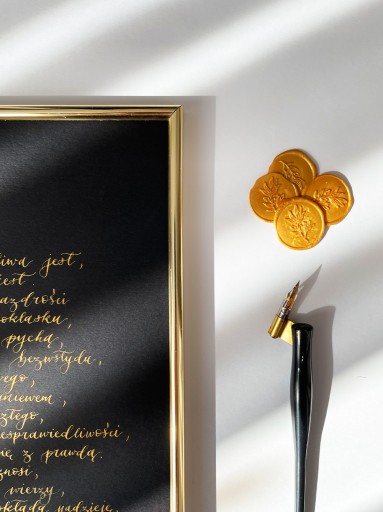 liwa jest,
jest.
azdrości
oklasku,
pychą,
bezwstydu,
wego,
gniewem,
złego,
esprawiedliwości,
się z prawdą.
znosi,
wierzy,
okłada nadzieję,